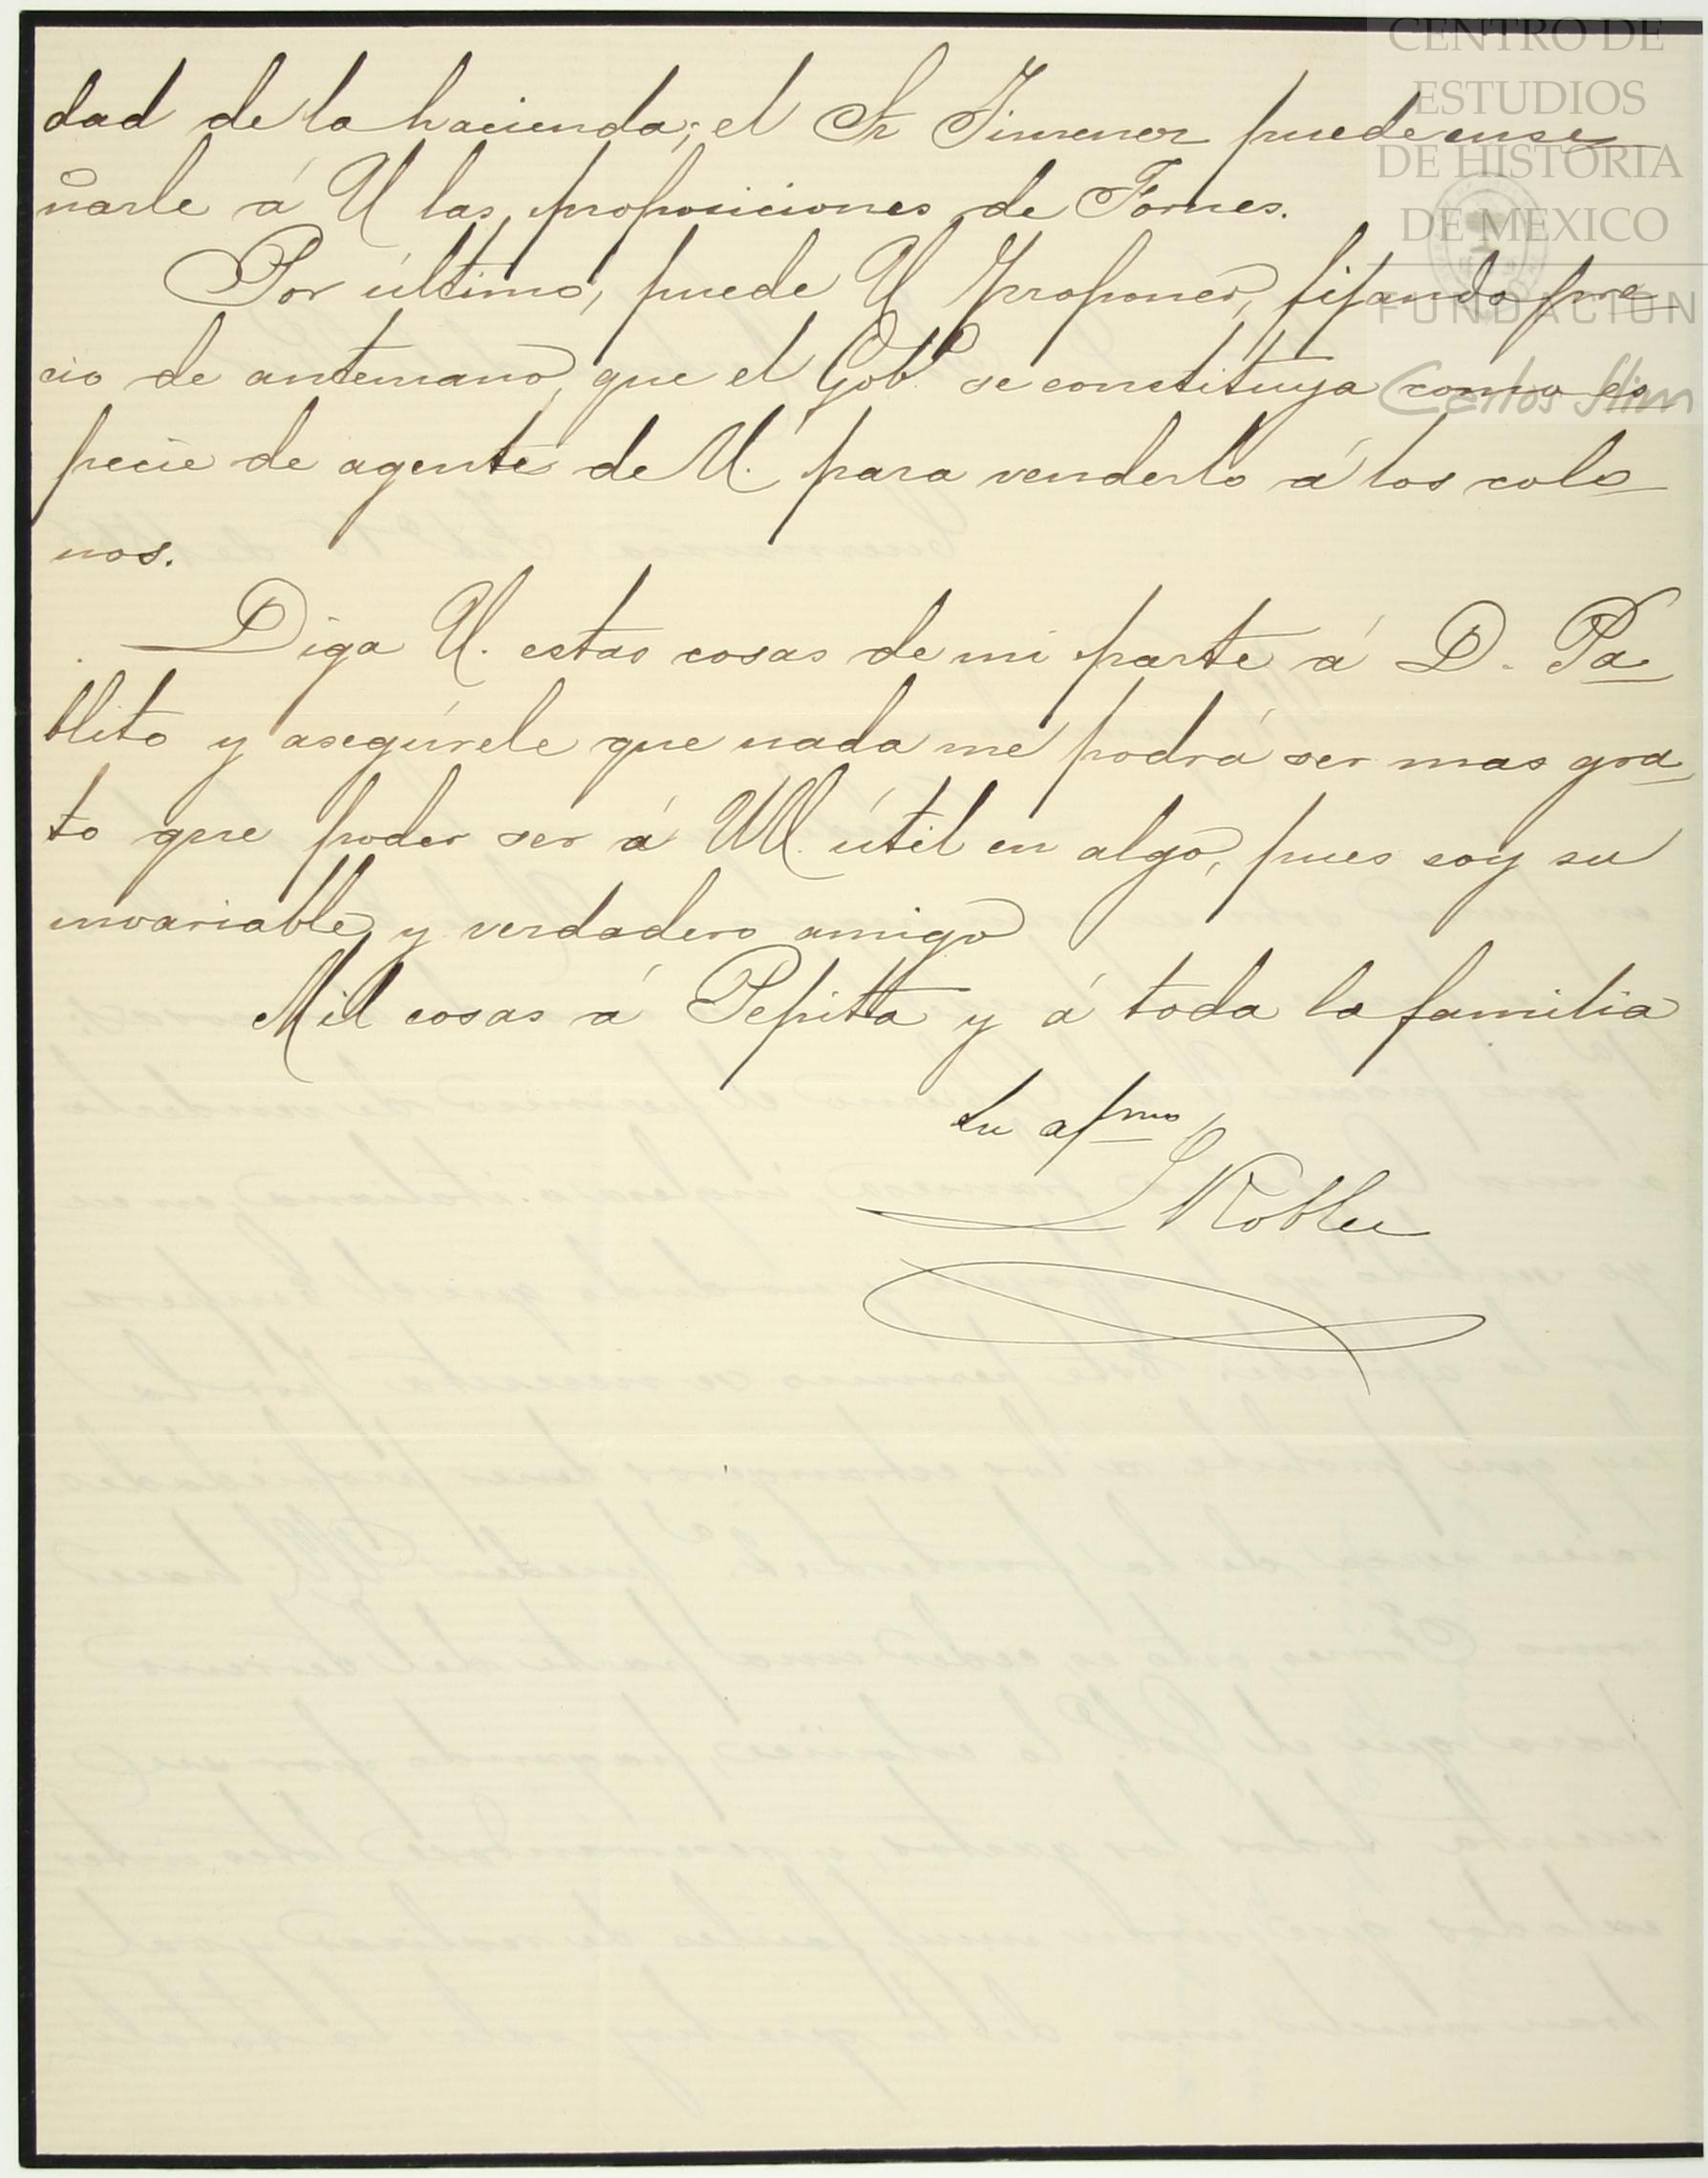 CENTRO DE
ESTUDIOS
DE HISTORIA
DE MEXICO
FUNDACION
Carlos Slim
dad de la hacienda; el Sr Jimenez puede ense
ñarle á U las proposiciones de Fornes.
Por último, puede U proponer, fijando pre
cio de antemano, que el Gobo. se constituya como es
pecie de agente de U. para venderlo á los colo
nos.
Diga U. estas cosas de mi parte á D. Pa
blito y asegúrele que nada me podrá ser mas gra
to que poder ser á UU. útil en algo, pues soy su
invariable y verdadero amigo
Mil cosas á Pepitta y á toda la familia
Su afmo
L Robles